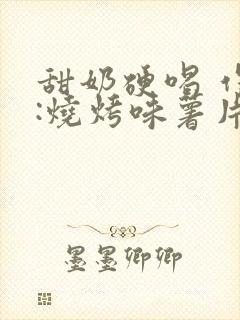 甜奶硬唱
:燒烤味薯片
墨墨卿卿